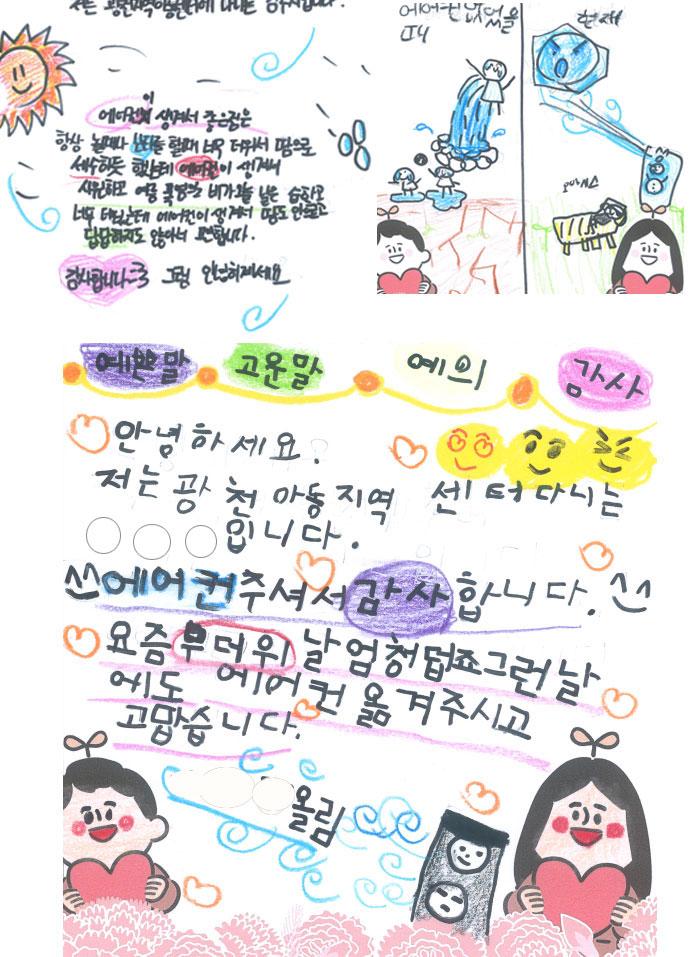 에어컨이 생겨서 좋은점은
항상 놀때나 난타를 칠때 너무 더워서 땀으로
세수하듯 했는데 에어컨이 생겨서
시원하고 여름 폭염과 비가오는 날은 습하고
너무 더웠는데 에어컨이 생겨서 땀도 안흘리고
답답하지도 않아서 편합니다.
감사합니다~ 그럼 안녕히계세요
에어컨 없었을
때
현재
예쁜말 고운말 예의 감사
안녕하세요.
저는 광천아동지역 센터다니는
입니다.
^^에어컨주셔서감사합니다.^^
요즘무더위 날엄청덥죠그런날
에도 에어컨 옮겨주시고
고맙습니다.
올림